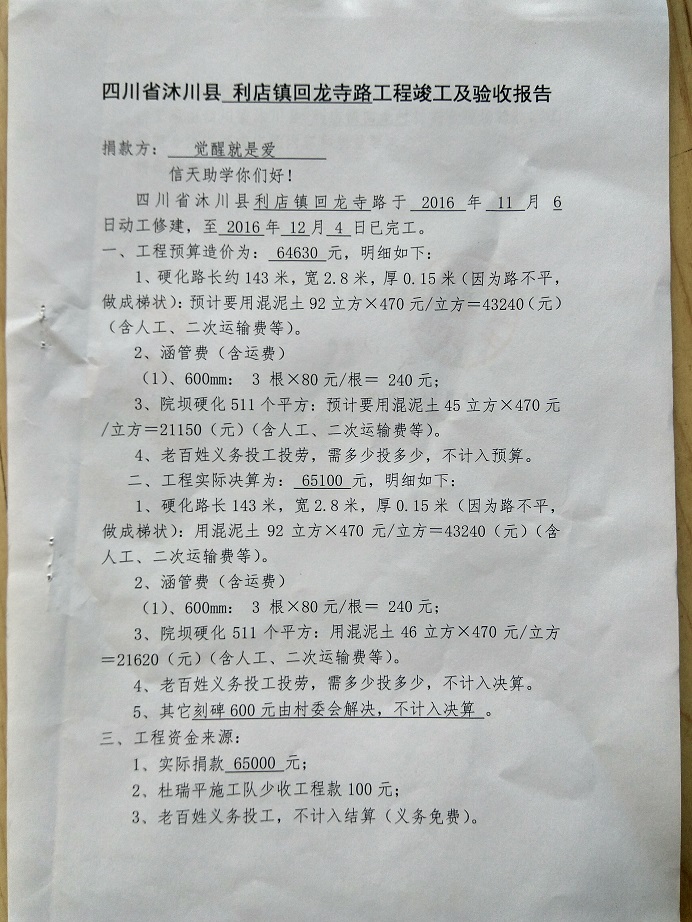 四川省沐川县 利店镇回龙寺路工程竣工及验收报告
捐款方： 觉醒就是爱
信天助学你们好！
四川省沐川县利店镇回龙寺路于 2016 年 11 月 6
日动工修建，至 2016 年 12 月 4 日已完工。
一、工程预算造价为： 64630 元，明细如下：
1、硬化路长约 143 米，宽 2.8 米，厚 0.15 米（因为路不平，
做成梯状）：预计要用混泥土 92 立方×470 元/立方＝43240（元）
（含人工、二次运输费等）。
2、涵管费（含运费）
（1）、600mm： 3 根×80 元/根＝ 240 元；
3、院坝硬化 511 个平方：预计要用混泥土 45 立方×470 元
/立方＝21150（元）（含人工、二次运输费等）。
4、老百姓义务投工投劳，需多少投多少，不计入预算。
二、工程实际决算为： 65100 元，明细如下：
1、硬化路长 143 米，宽 2.8 米，厚 0.15 米（因为路不平，
做成梯状）：用混泥土 92 立方×470 元/立方＝43240（元）（含
人工、二次运输费等）。
2、涵管费（含运费）
（1）、600mm： 3 根×80 元/根＝ 240 元；
3、院坝硬化 511 个平方：用混泥土 46 立方×470 元/立方
＝21620（元）（含人工、二次运输费等）。
4、老百姓义务投工投劳，需多少投多少，不计入决算。
5、其它刻碑 600 元由村委会解决，不计入决算 。
三、工程资金来源：
1、实际捐款 65000 元；
2、杜瑞平施工队少收工程款 100 元；
3、老百姓义务投工，不计入结算（义务免费）。